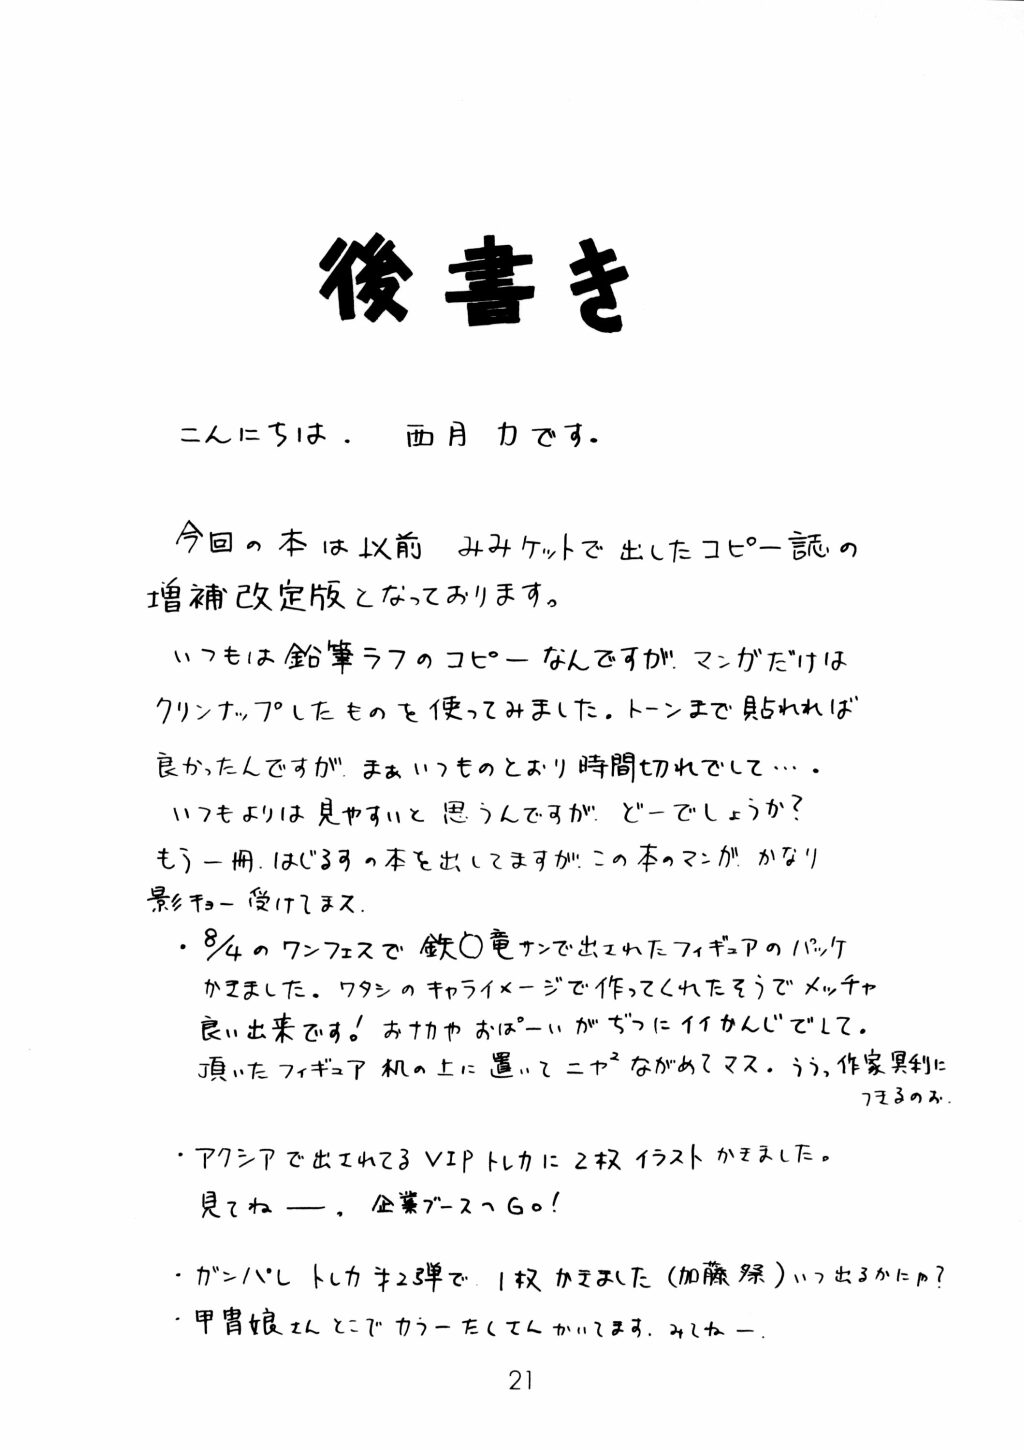 後書き
こんにちは. 西月 力です。
今回の本は以前 みみケットで出したコピー誌の
増補改定版となっております。
いつもは鉛筆ラフのコピーなんですが、マンガだけは
クリンナップしたものを使ってみました。トーンまで貼れれば
良かったんですが、まぁいつものとおり時間切れでして….
いつもよりは見やすいと思うんですが、どーでしょうか?
もう一冊、はじるすの本を出してますが、この本のマンガ、かなり
影キョー受けてマス.
・8/4のワンフェスで鉄〇竜サンで出されたフィギュアのパッケ
かきました。ワタシのキャライメージで作ってくれたそうでメッチャ
良い出来です! おナカやおぱーいがぢつにイイかんじでして。
頂いたフィギュア机の上に置いてニヤ²ながめてマス。ううっ作家冥利に
つきるのぉ.
・アクシアで出されてるVIPトレカに2枚イラストかきました。
見てねー. 企業ブースへGo!
・ガンパレトレカ㐧2弾で、1枚かきました(加藤祭)いつ出るかにゃ?
・甲冑娘さんとこでカラーたくさんかいてます.みてねー.
21